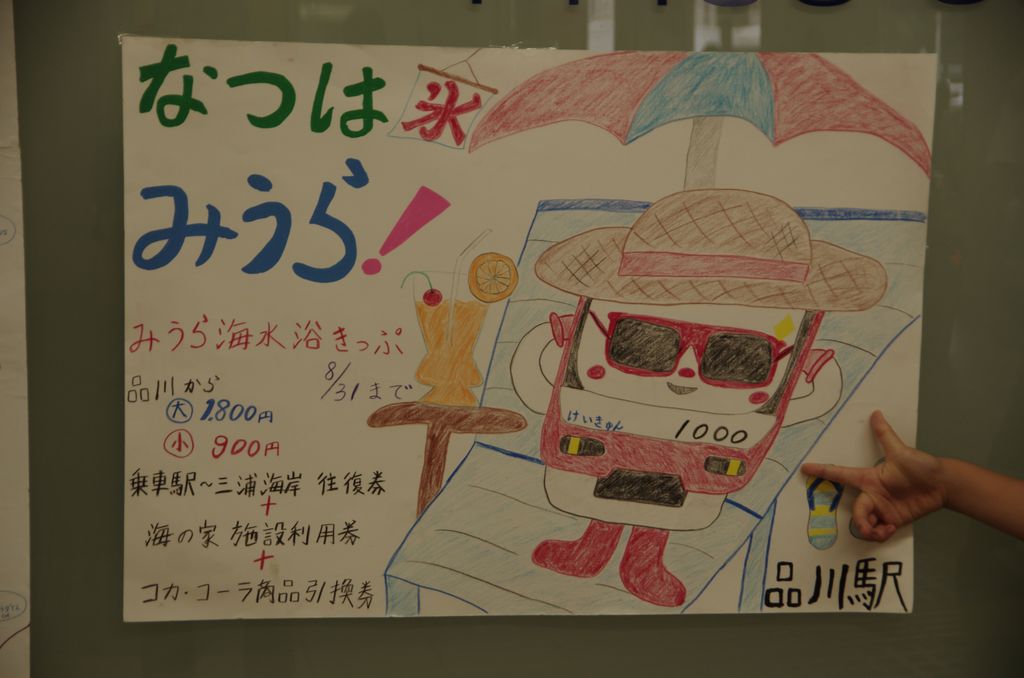 なつは
氷
みうら!
みうら海水浴きっぷ
8/31まで
品川から
大 1,800円
小 900円
乗車駅～三浦海岸 往復券
+
海の家 施設利用券
+
コカ・コーラ商品引換券
けいきゅん
1000
品川駅